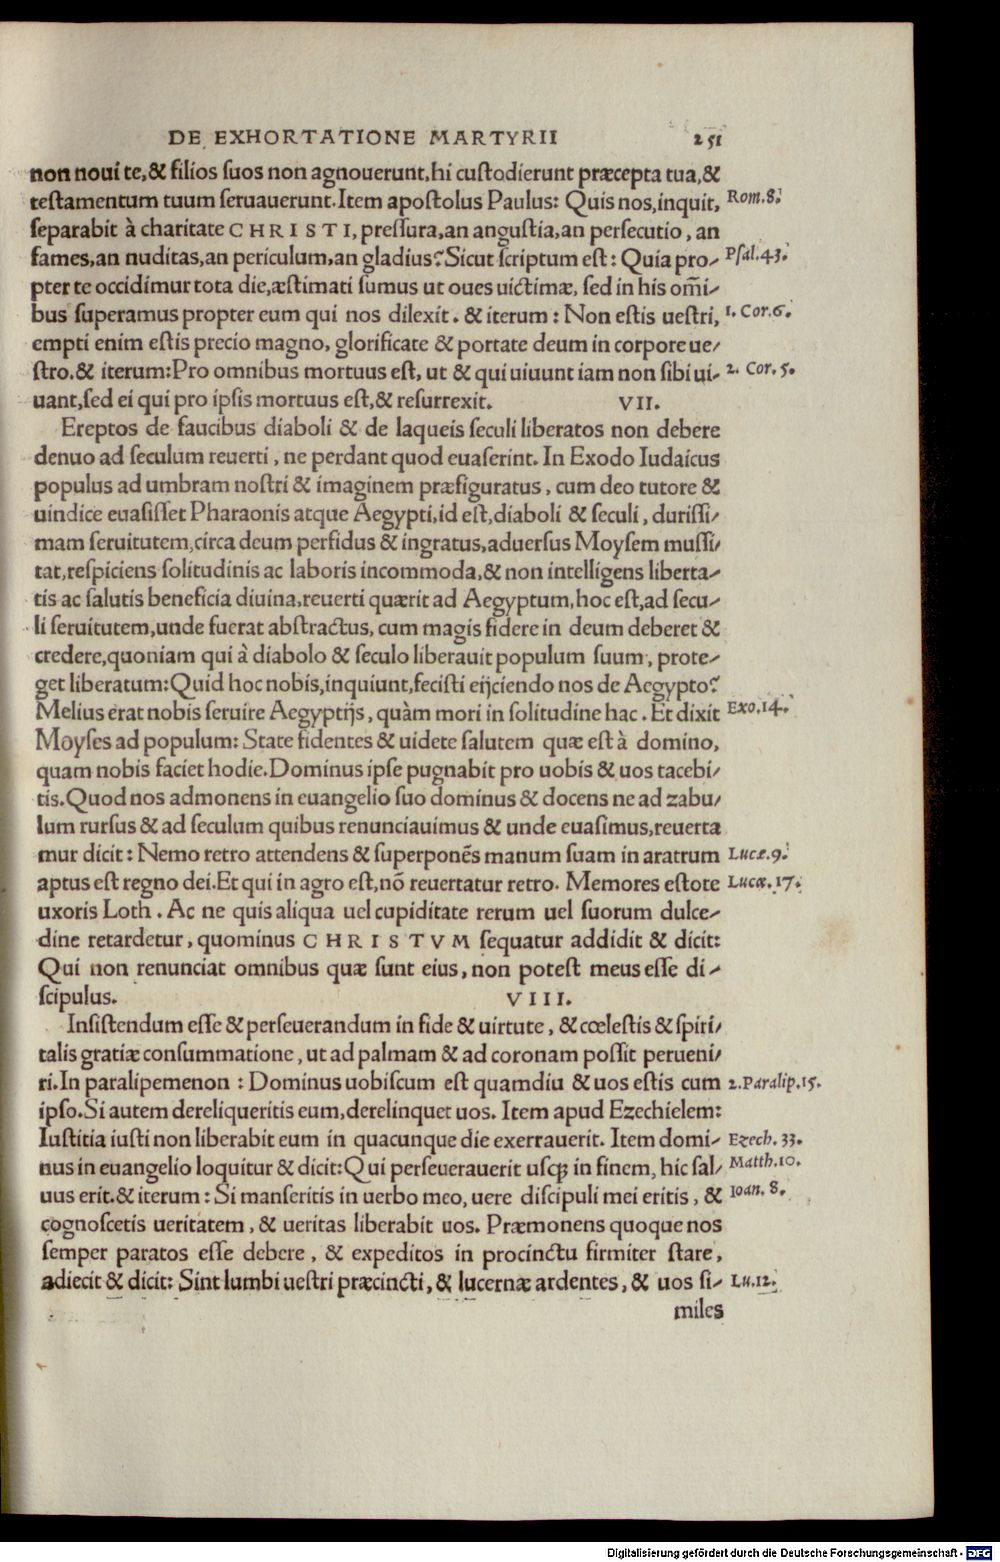 DE EXHORTATIONE MARTYRII 251
non noui te,& filios ſuos non agnouerunt,hi cuſtodierunt præcepta tua,&
teſtamentum tuum ſeruauerunt.Item apoſtolus Paulus: Quis nos,inquit, Rom.8.
ſeparabit à charitate CHRISTI, preſſura,an anguſtia,an perſecutio, an
fames,an nuditas,an periculum,an gladius? Sicut ſcriptum eſt: Quia pro- Pſal.43.
pter te occidimur tota die,æſtimati ſumus ut oues uictimæ, ſed in his om̃i-
bus ſuperamus propter eum qui nos dilexit. & iterum: Non eſtis ueſtri, 1. Cor.6.
empti enim eſtis precio magno, glorificate & portate deum in corpore ue-
ſtro.& iterum:Pro omnibus mortuus eſt, ut & qui uiuunt iam non ſibi ui- 2. Cor. 5.
uant,ſed ei qui pro ipſis mortuus eſt,& reſurrexit. VII.
Ereptos de faucibus diaboli & de laqueis ſeculi liberatos non debere
denuo ad ſeculum reuerti, ne perdant quod euaſerint. In Exodo Iudaicus
populus ad umbram noſtri & imaginem præfiguratus, cum deo tutore &
uindice euaſiſſet Pharaonis atque Aegypti,id eſt,diaboli & ſeculi, duriſſi-
mam ſeruitutem,circa deum perfidus & ingratus,aduerſus Moyſem muſſi-
tat,reſpiciens ſolitudinis ac laboris incommoda,& non intelligens liberta-
tis ac ſalutis beneficia diuina,reuerti quærit ad Aegyptum,hoc eſt,ad ſecu-
li ſeruitutem,unde fuerat abſtractus, cum magis fidere in deum deberet &
credere,quoniam qui à diabolo & ſeculo liberauit populum ſuum, prote-
get liberatum:Quid hoc nobis,inquiunt,feciſti eijciendo nos de Aegypto?
Melius erat nobis ſeruire Aegyptijs, quàm mori in ſolitudine hac. Et dixit Exo.14.
Moyſes ad populum: State fidentes & uidete ſalutem quæ eſt à domino,
quam nobis faciet hodie.Dominus ipſe pugnabit pro uobis & uos tacebi-
tis.Quod nos admonens in euangelio ſuo dominus & docens ne ad zabu-
lum rurſus & ad ſeculum quibus renunciauimus & unde euaſimus,reuerta
mur dicit: Nemo retro attendens & ſuperponẽs manum ſuam in aratrum Lucæ.9.
aptus eſt regno dei.Et qui in agro eſt,nõ reuertatur retro. Memores eſtote Lucæ.17.
uxoris Loth. Ac ne quis aliqua uel cupiditate rerum uel ſuorum dulce-
dine retardetur, quominus CHRISTVM ſequatur addidit & dicit:
Qui non renunciat omnibus quæ ſunt eius, non poteſt meus eſſe di-
ſcipulus. VIII.
Inſiſtendum eſſe & perſeuerandum in fide & uirtute, & cœleſtis & ſpiri-
talis gratiæ conſummatione, ut ad palmam & ad coronam poſſit perueni-
ri.In paralipemenon: Dominus uobiſcum eſt quamdiu & uos eſtis cum 2.Paralip.15.
ipſo.Si autem dereliqueritis eum,derelinquet uos. Item apud Ezechielem:
Iuſtitia iuſti non liberabit eum in quacunque die exerrauerit. Item domi- Ezech. 33.
nus in euangelio loquitur & dicit:Qui perſeuerauerit uſꝗ in finem, hic ſal- Matth.10.
uus erit.& iterum: Si manſeritis in uerbo meo, uere diſcipuli mei eritis, & Ioan. 8.
cognoſcetis ueritatem, & ueritas liberabit uos. Præmonens quoque nos
ſemper paratos eſſe debere, & expeditos in procinctu firmiter ſtare,
adiecit & dicit: Sint lumbi ueſtri præcincti, & lucernæ ardentes, & uos ſi- Lu.12.
miles
Digitalisierung gefördert durch die Deutsche Forschungsgemeinschaft - DFG